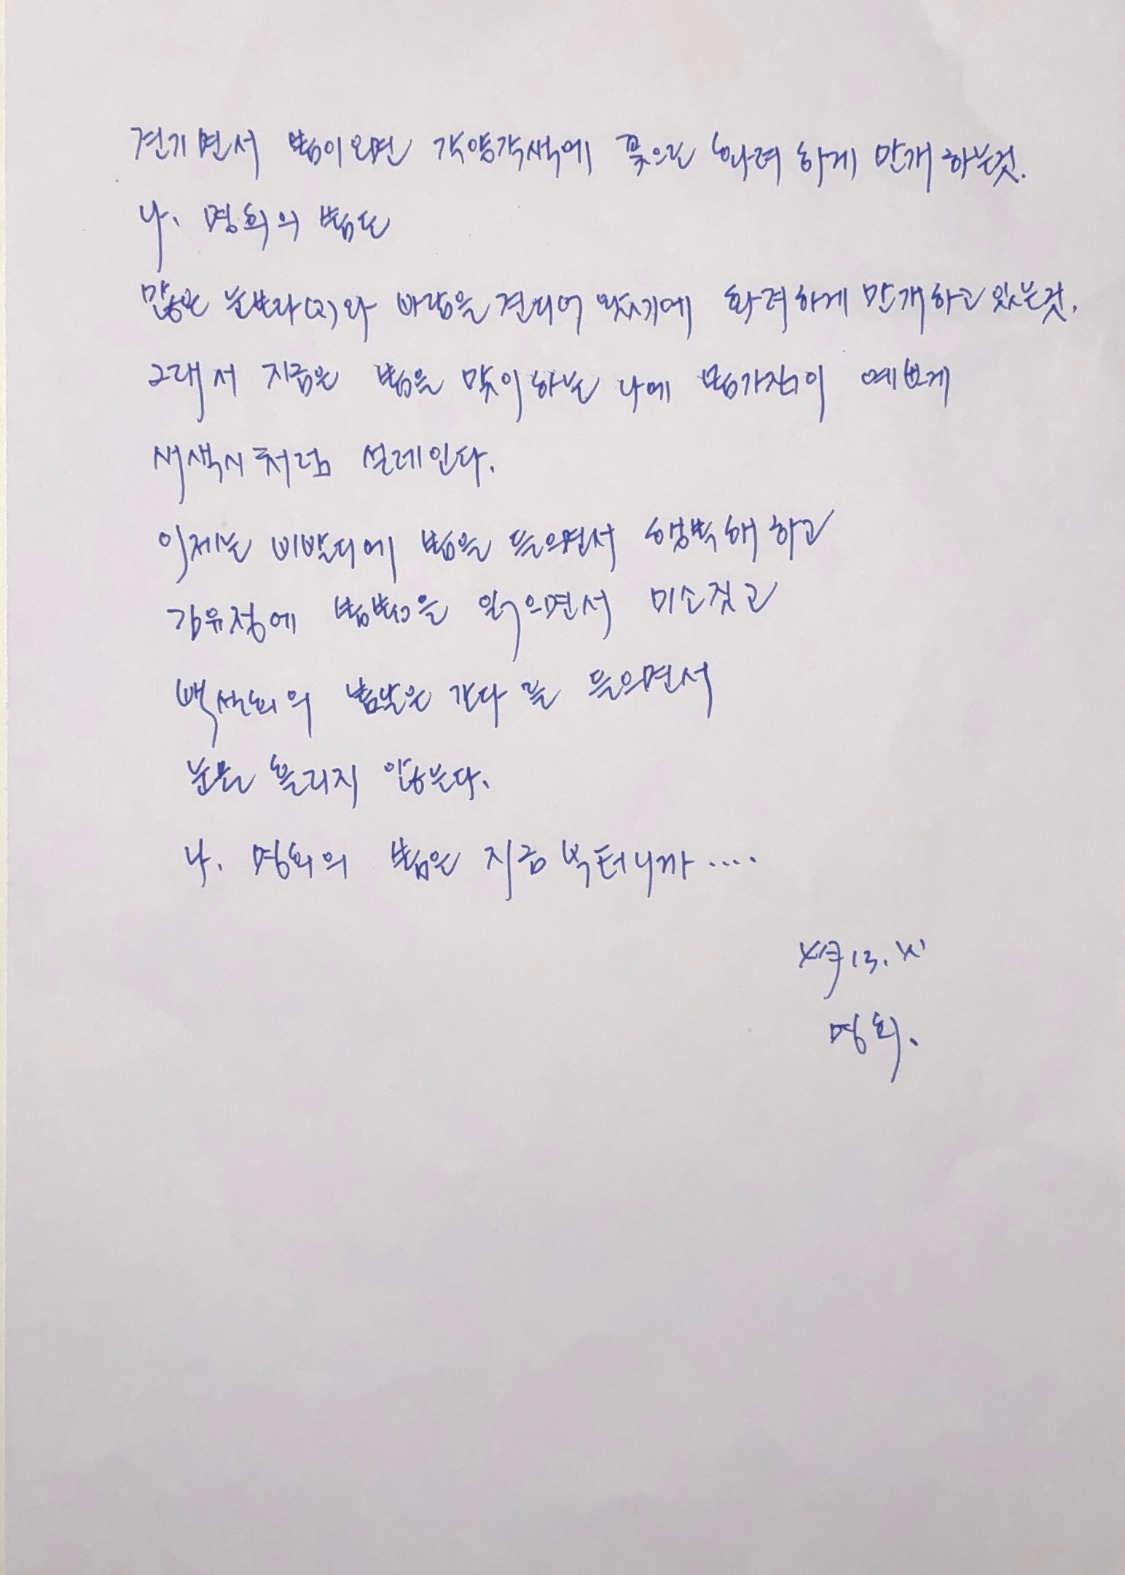 견기면서 봄이오면 각양각색에 꽃으로 화려 하게 만개 하는것.
나. 명희의 봄도
많은 눈보라(2)와 바람을 견디어 왔기에 화려하게 만개하고 있는것.
그래서 지금은 봄을 맞이하는 나에 봄가짐이 예쁘게
새색시처럼 설레인다.
이제는 비발디에 봄을 들으면서 행복해 하고
김유정에 봄봄을 읽으면서 미소짓고
백설희의 봄날은 간다 를 들으면서
눈물 흘리지 않는다.
나. 명희의 봄은 지금 부터니까....
4월 13.
명희.